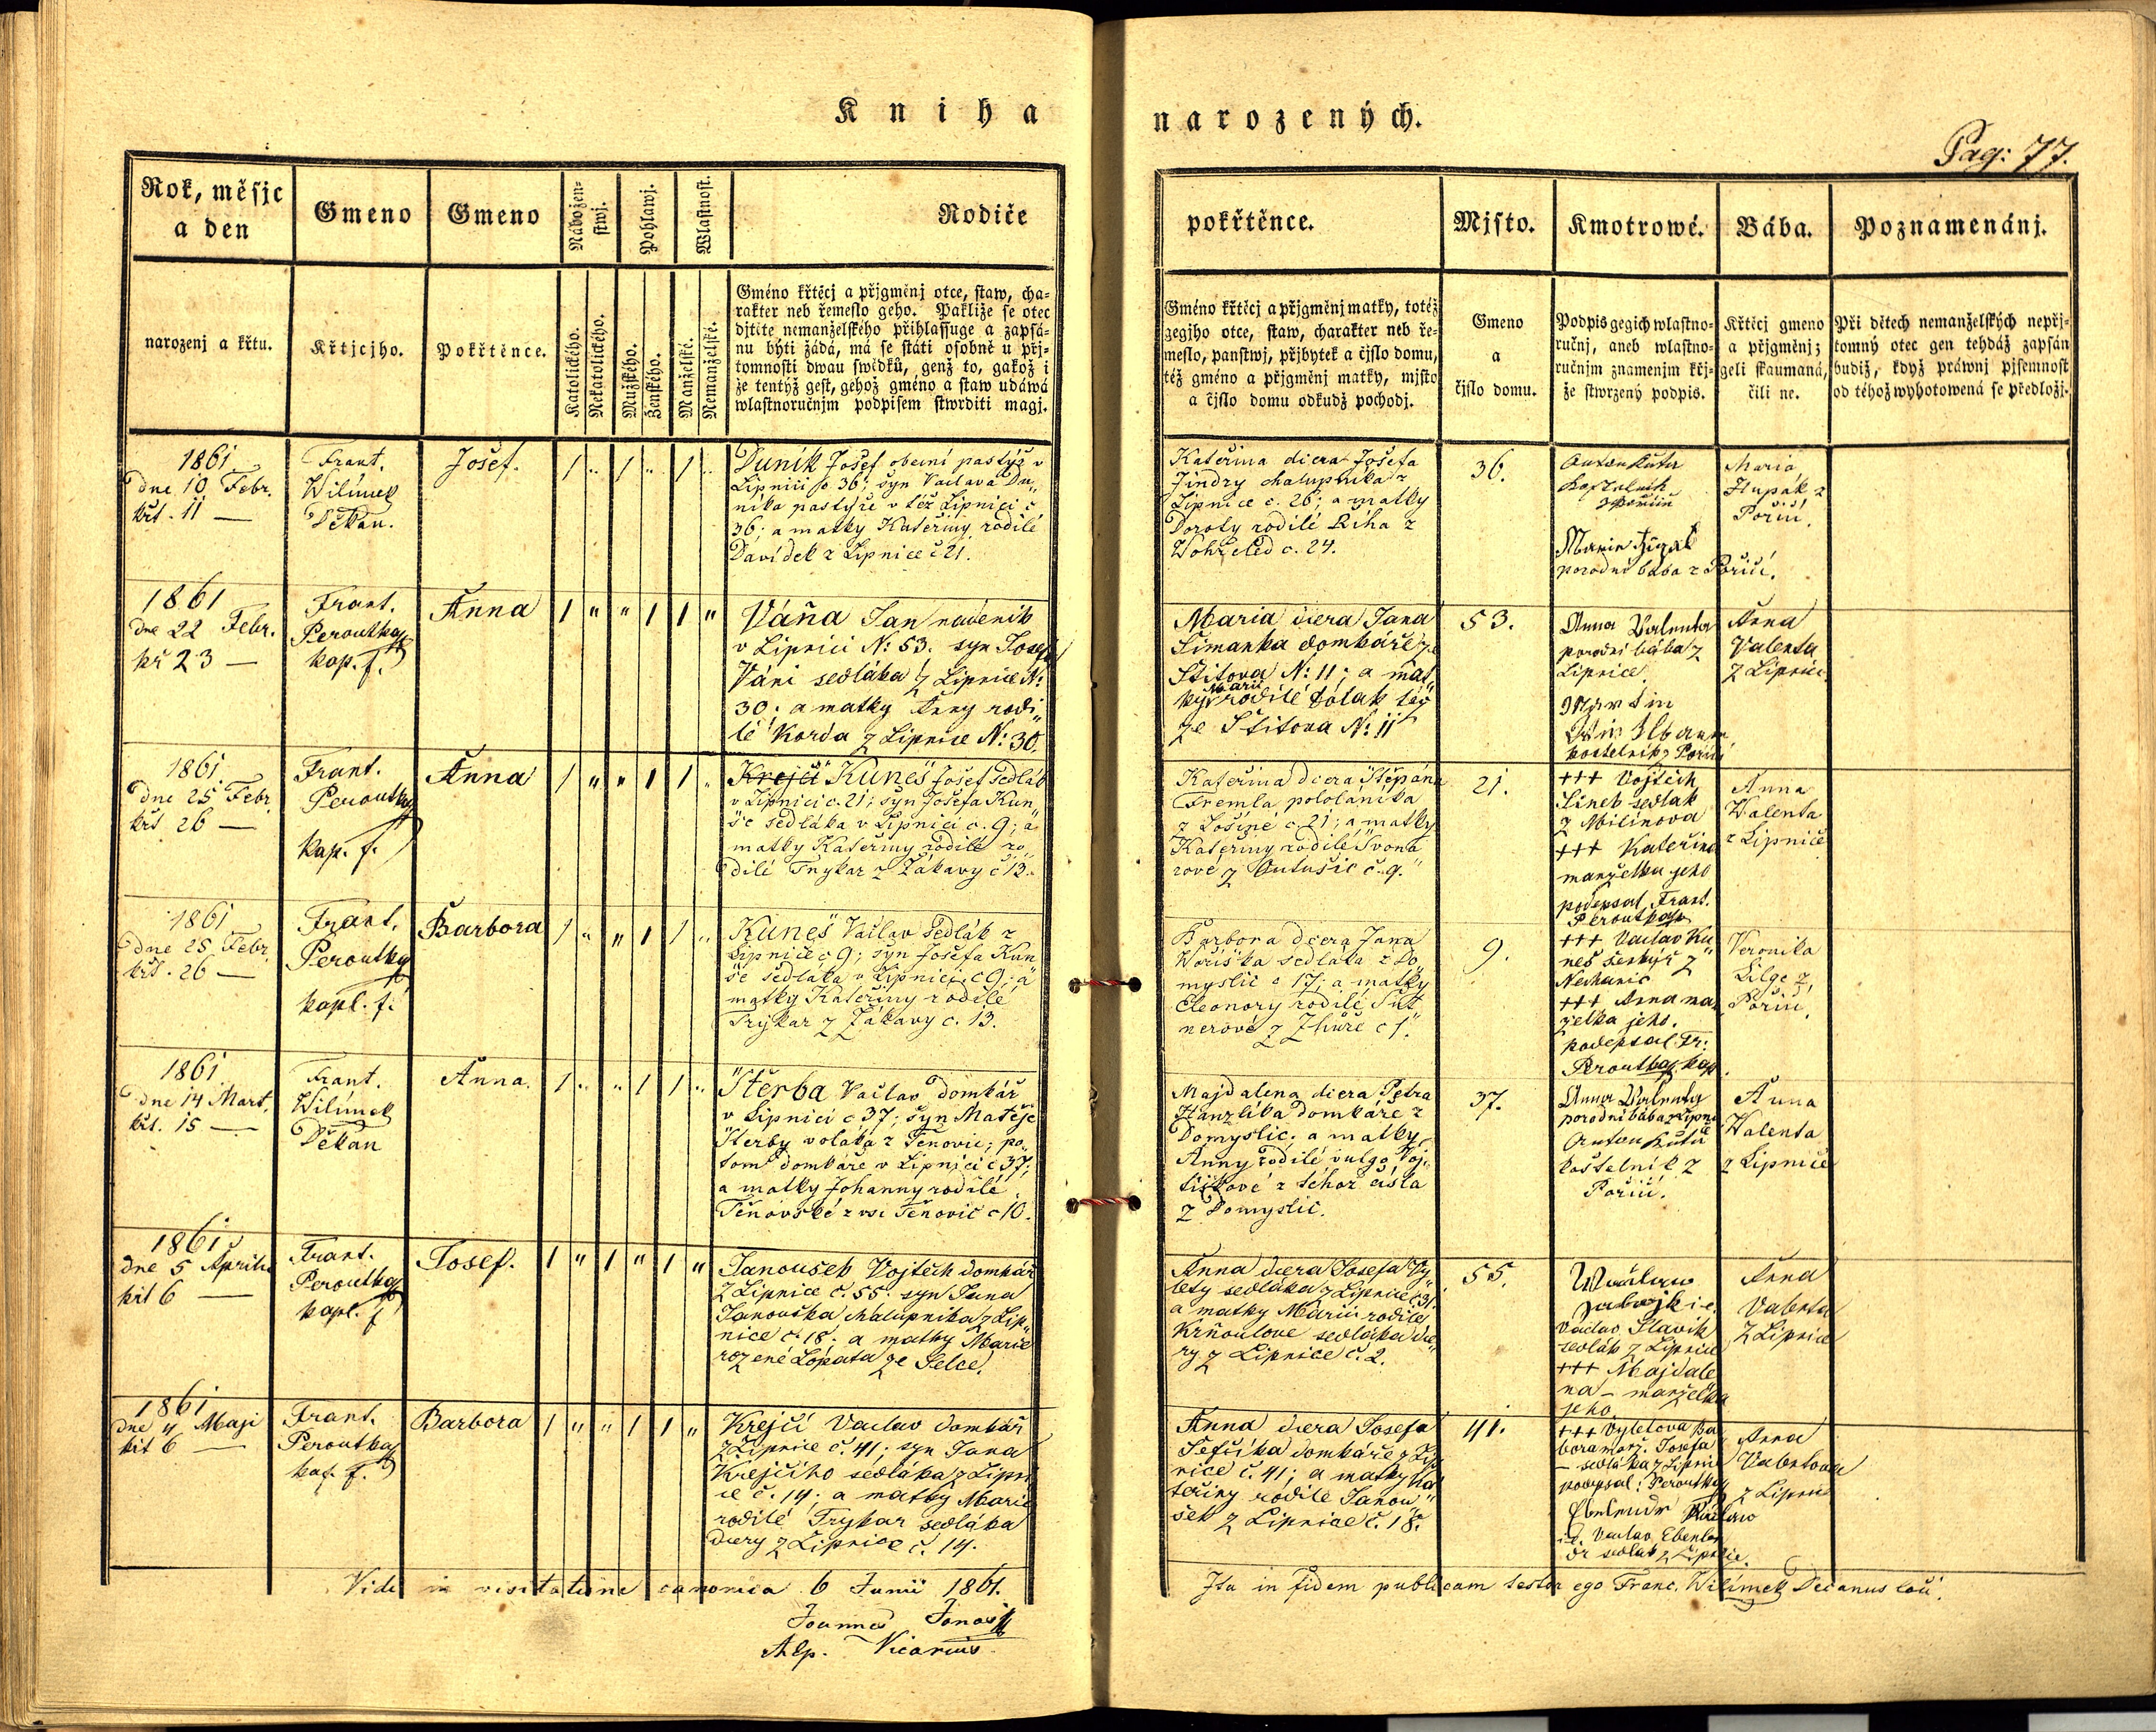 Kniha
narozených.
Pag: 77.
Rok, měsjc
a den
narozenj a křtu.
Gmeno
Křtjcjho.
Gmeno
Pokřtěnce.
Nábožen-
stwj.
Katolického.
Nekatolického.
Pohlawj.
Mužského.
Ženského.
Wlastnost.
Manželské.
Nemanželské.
Rodiče
Gméno křtěcj a přjgměnj otce, staw, cha-
rakter neb řemeslo geho. Pakliže se otec
djtěte nemanželského přihlassuge a zapsá-
nu býti žádá, má se státi osobně u přj-
tomnosti dwau swědků, genž to, gakož i
že tentýž gest, gehož gméno a staw udáwá
wlastnoručnjm podpisem stwrditi magj.
pokřtěnce.
Gméno křtěcj a přjgměnj matky, totéž
gegjho otce, staw, charakter neb ře-
meslo, panstwj, přjbytek a čjslo domu,
též gméno a přjgměnj matky, mjsto
a čjslo domu odkudž pochodj.
Mjsto.
Gmeno
a
čjslo domu.
Kmotrowé.
Podpis gegich wlastno-
ručnj, aneb wlastno-
ručnjm znamenjm křj-
že stwrzený podpis.
Bába.
Křtěcj gmeno
a přjgměnj;
geli skaumaná,
čili ne.
Poznamenánj.
Při dětech nemanželských nepřj-
tomný otec gen tehdáž zapsán
budiž, když práwnj pjsemnost
od téhož wyhotowená se předložj.
1861
dne 10 Febr.
křt. 11 —
Frant.
Wilímek
Děkan.
Josef.
Duník Josef obecní pastýř v
Lipnici č 36; syn Vaclava Du„
níka pastýře v též Lipnici č
36; a matky Kateřiny rodilé
Davídek z Lipnice č 21.
Kateřina dcera Josefa
Jindry chalupníka z
Lipnice č. 26; a matky
Doroty rodilé Říha z
Wohřeled c. 24.
36.
Anton Kutu

Maria
Hupák z
Poříčí.
porodní bába z Poříčí.
1861
dne 22 Febr.
kř 23 —
Frant.
Peroutka
kap. f.
Anna
Váňa Jan nadeník
v Lipnici N: 53. syn Josefa
Váni sedláka z Lipnice N:
30; a matky Anny rodi„
lé Korda z Lipnice N: 30.
Maria dcera Jana
Šimanka domkáře ze
Štitova N: 11; a mat„
ky Marie rodilé
ze Štitova N: 11
53.
Anna Valenta
porodní bába z
Lipnice.
Martin

kostelník z Poříčí
Anna
Valenta
z Lipnice.
1861
dne 25 Febr
křt 26 —
Frant.
Peroutka
kap. f.
Anna
Krejčí Kuneš Josef sedlák
v Lipnici c. 21; syn Josefa Kun„
še sedláka v Lipnici c. 9; a
matky Kateřiny rodilé ro
dilé Trykar z Žákavy č 13.
Kateřina dcera Štěpána
Tremla pololánika
z Lošiné c 21; a matky
Kateřiny rodilé
rové z Outušic č. 9.
21.
+++ Vojtěch
Šinek sedlak
z Milinova
+++ Kateřina
manželka jeho
podepsal Frant.
Peroutka
Anna
Walenta
z Lipnice
1861
dne 25 Febr
křt. 26 —
Frant.
Peroutka
kapl. f.
Barbora
Kuneš Vaclav sedlák z
Lipnice c 9; syn Josefa Kun
še sedláka v Lipnici c 9; a
matky Kateřiny rodilé
Trykar z Žákavy c. 13.
Barbora dcera Jana
Woříška sedláka z Do
myslic c 17; a matky
Eleonory rodilé
nerové z Zhůře c 1.
9.
+++ Vaclav Ku„
neš z
Nechanic
+++ Anna man„
želka jeho.
podepsal Fr:
Peroutka kap.
Veronika
Lilge z
Poříčí.
1861
dne 14 Mart.
křt. 15 —
Frant.
Wilímek
Děkan
Anna.
Šterba Vaclav domkář
v Lipnici c 37; syn Matěje
Šterby voláka z Ťenovic; po„
tom domkáře v Lipnici č 37;
a matky Johanny rodilé
Ťenovské z vsi Ťenovic c 10.
Majdalena dcera Petra
Hanzlíka domkáře z
Domyslic; a matky
Anny rodilé vulgo Voj„
tiškové z téhož čisla
z Domyslic.
37.
Anna Valenta
porodní bába z Lipnice
Anton Kutu
kostelník z
Poříčí.
Anna
Walenta
z Lipnice
1861
dne 5 Aprilis
křt 6 —
Frant.
Peroutka
kapl. f
Josef.
Janoušek Vojtěch domkář
z Lipnice č. 55. syn Jana
Janouška chalupníka z Lip„
nice č. 18. a matky Marie
rozené Lopata ze Selce.
Anna dcera Josefa Vy
lety sedláka z Lipnice č 31.
a matky Marii rodilé
Krňoulove sedláka dce„
ry z Lipnice č. 2.
55.
Václav Slavik
sedlák z Lipnice
+++ Majdale
na – manželka
jeho
Anna
Valenta
z Lipnice
1861
dne 4 Maji
křt 6 —
Frant.
Peroutka
kap. f.
Barbora
Krejčí Vaclav domkář
z Lipnice č. 41; syn Jana
Krejčího sedláka z Lipni
ce č. 14; a matky Marie
rodilé Trykar sedláka
dcery z Lipnice č. 14.
Anna dcera Josefa
Šefčíka domkáře z Lip
nice č. 41; a matky Ka
teřiny rodilé Janou„
šek z Lipnice č. 18.
41.
+++ Vyletova Ba
bora manž. Josefa
– sedláka z Lipnice
podepsal: Peroutka
i.e. Vaclav Ebenlen
dr sedlák z Lipnice.
Anna
Valentova
z Lipnice
Vidi in visitatione canonica 6 Junii 1861.
Joannes Jonas
Alp. Vicarius
Ita in fidem publicam testor ego Franc. Wilímek Decanus